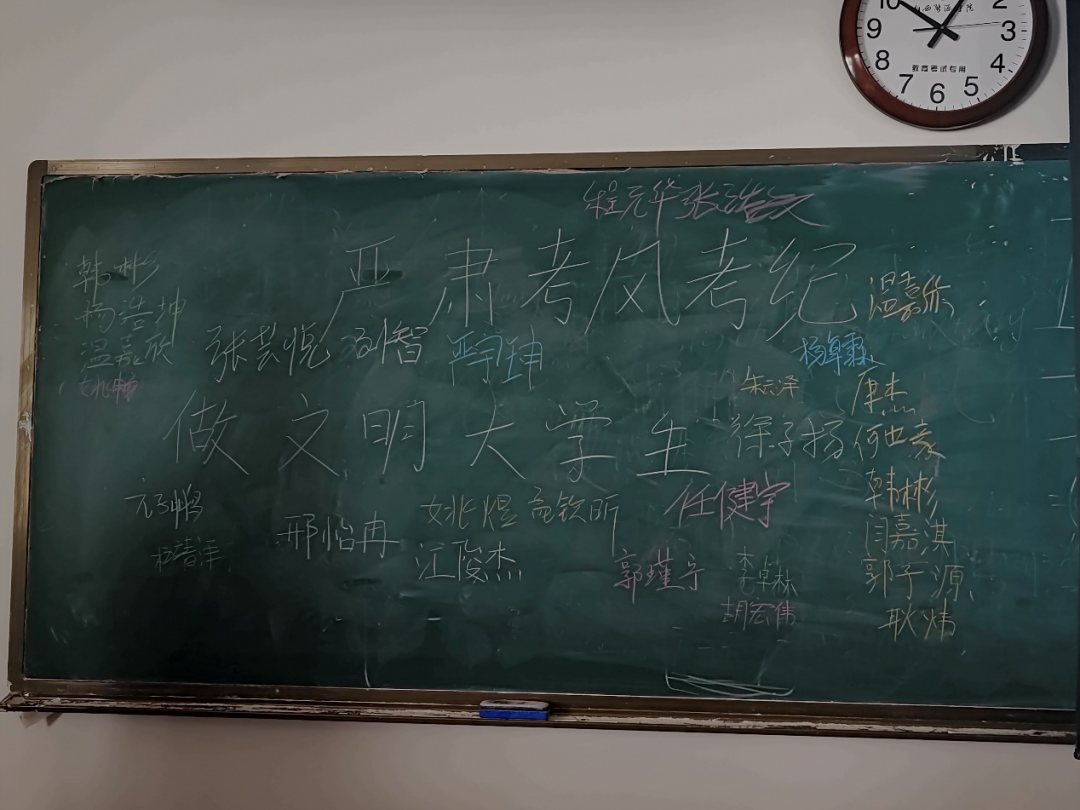 10 2
9 3
8 4
7 6 5
教育考试专用
程元华 张浩文
严肃考风考纪
韩彬
杨浩坤
温嘉欣
姚畅
温嘉欣
张芸悦
严宇坤
杨卓霖
朱云泽
康杰
做文明大学生
徐子扬
何世豪
韩彬
邢怡冉
姚煜
孟钦昕
任健宇
江俊杰
杨靖洋
闫嘉淇
郭瑾宁
李卓林
郭子源
胡宏伟
耿炜